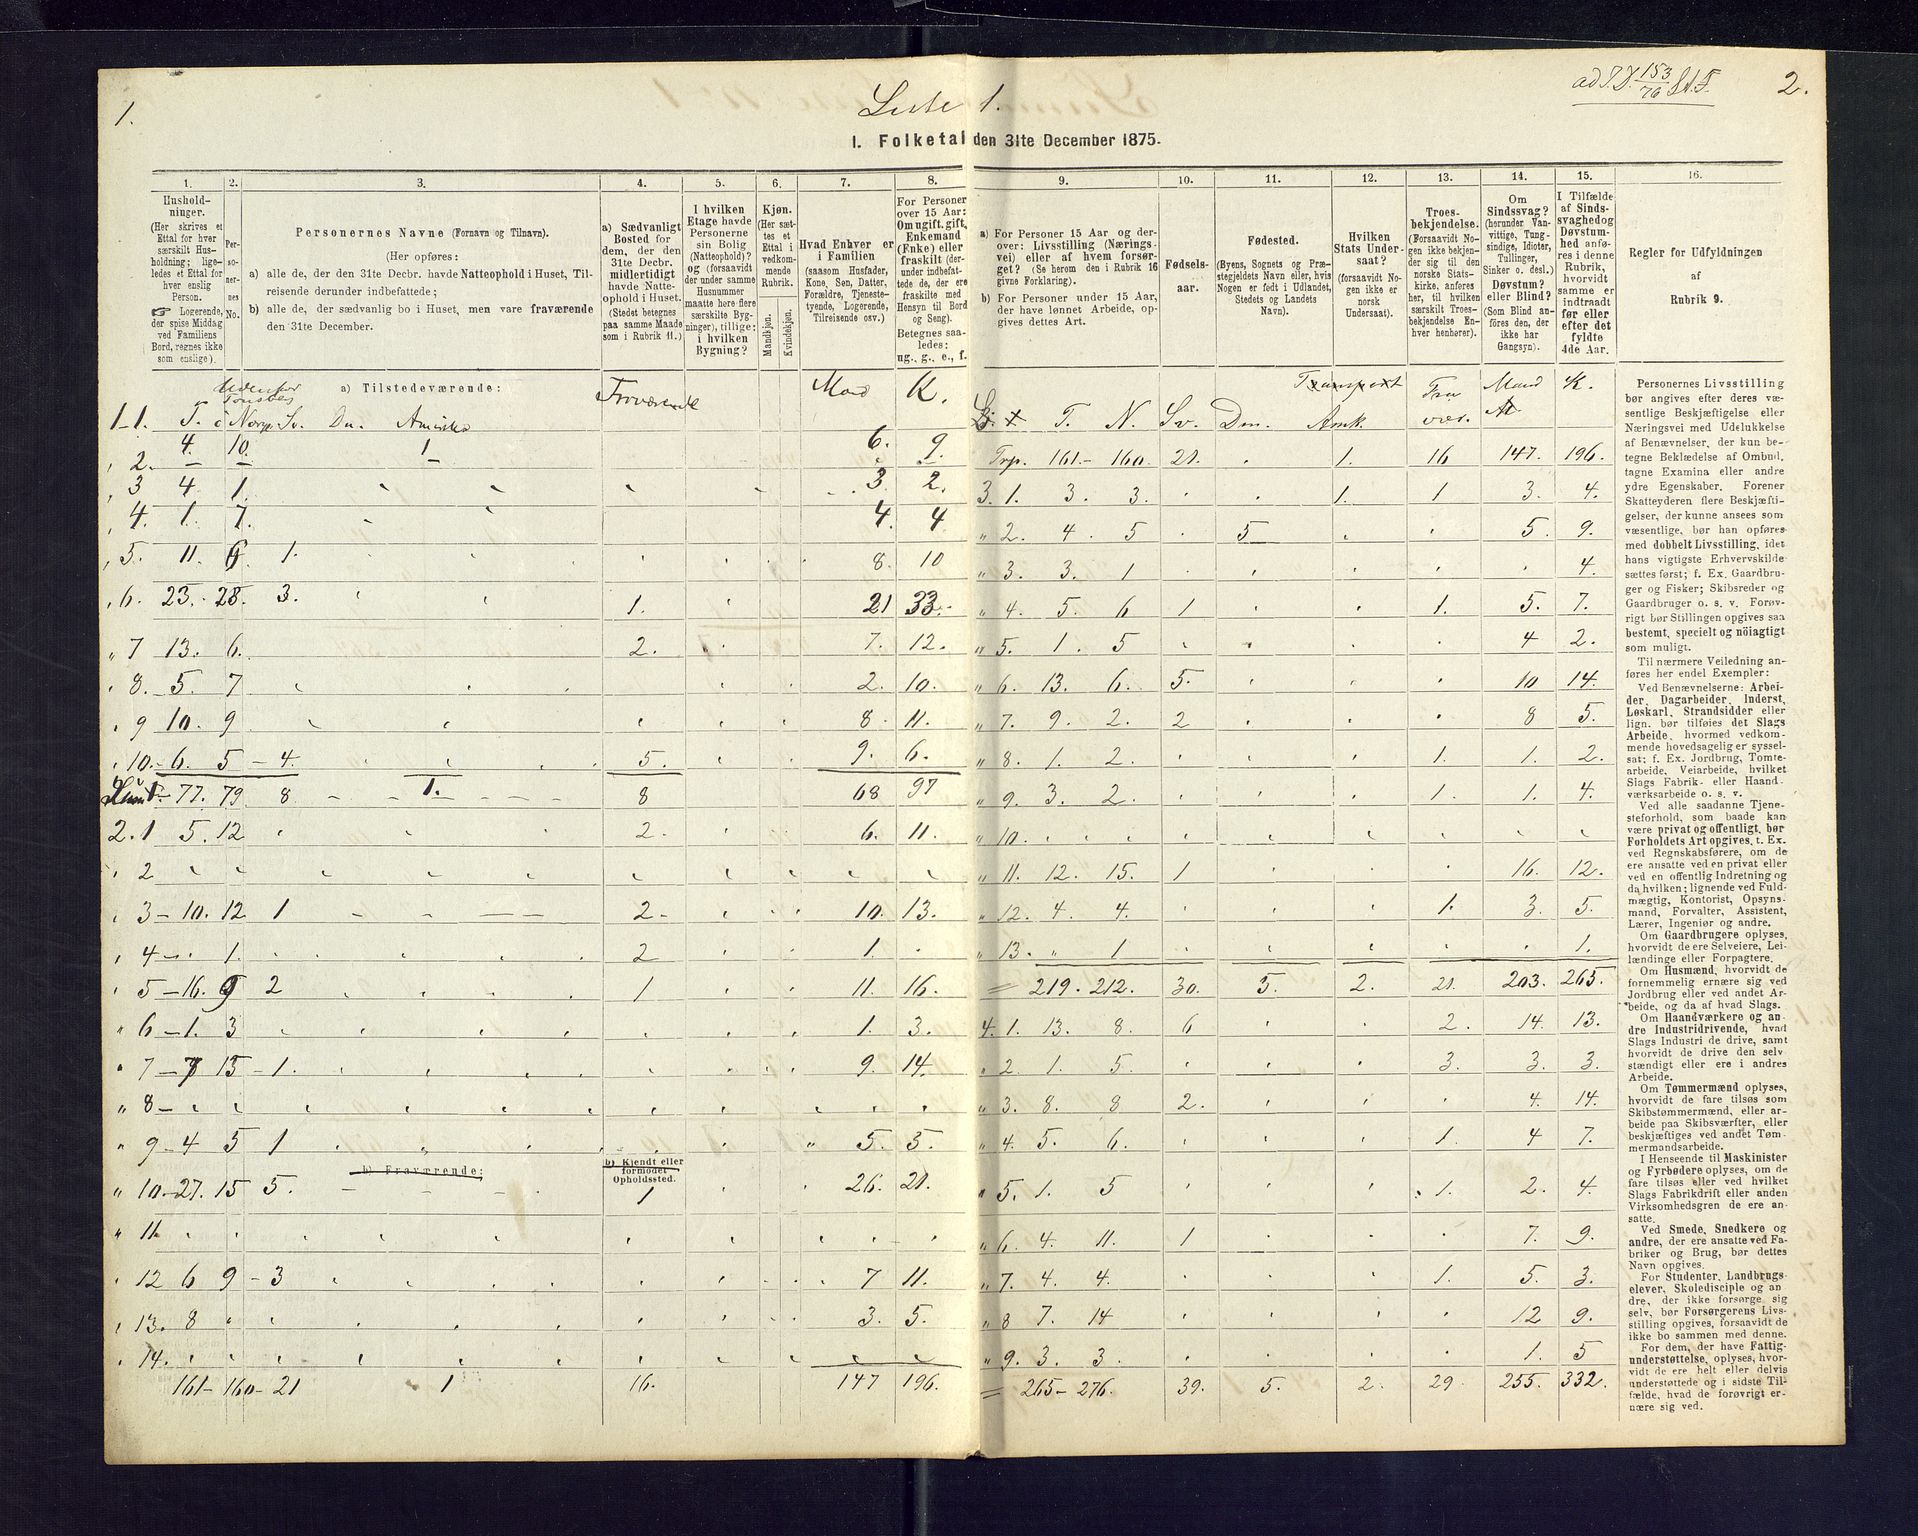 1.
Liste 1.
ad J.D. 153/76 St.F.
2.
1. Folketal den 31te December 1875.
1. 2. 3. 4. 5. 6. 7. 8. 9. 10. 11. 12. 13. 14. 15. 16.
Husholdninger.
(Her skrives et
Ettal for hver
særskilt Husholdning;
ligeledes et Ettal for
hver enslig
Person.
☞ Logerende,
der spise Middag
ved Familiens
Bord, regnes ikke
som enslige).
Personernes
No.
Personernes Navne (Fornavn og Tilnavn).
(Her opføres:
a) alle de, der den 31te Decbr. havde Natteophold i Huset, Tilreisende derunder indbefattede;
b) alle de, der sædvanlig bo i Huset, men vare fraværende
den 31te December.
a) Sædvanligt
Bosted for
dem, der den
31te Decbr.
midlertidigt
havde Natteophold
i Huset.
(Stedet betegnes
paa samme Maade
som i Rubrik 11.)
I hvilken
Etage havde
Personerne
sin Bolig
(Natteophold)?
og (forsaavidt
der under samme
Husnummer
maatte høre flere
særskilte Bygninger),
tillige:
i hvilken
Bygning?
Kjøn.
(Her sættes
et
Ettal i
vedkommende
Rubrik.
Mandskjøn.
Kvindekjøn.
Hvad Enhver er
i Familien
(saasom Husfader,
Kone, Søn, Datter,
Forældre, Tjenestetyende,
Logerende,
Tilreisende osv.)
For Personer
over 15 Aar:
Om ugift, gift,
Enkemand
(Enke) eller
fraskilt (derunder
indbefattede
de, der ere
fraskilte med
Hensyn til Bord
og Seng).
Betegnes saaledes:
ug., g., e., f.
a) For Personer 15 Aar og derover:
Livsstilling (Næringsvei)
eller af hvem forsørget?
(Se herom den i Rubrik 16
givne Forklaring).
b) For Personer under 15 Aar,
der have lønnet Arbeide, opgives
dettes Art.
Fødselsaar.
Fødested.
(Byens, Sognets og Præstegjeldets
Navn eller, hvis
Nogen er født i Udlandet,
Stedets og Landets
Navn).
Hvilken
Stats Undersaat?
(forsaavidt Nogen
ikke er
norsk
Undersaat).
Troesbekjendelse.
(Forsaavidt Nogen
ikke bekjender
sig til den
norske Statskirke,
anføres
her, til hvilken
særskilt Troesbekjendelse
Enhver
henhører).
Om
Sindssvag?
(herunder Vanvittige,
Tungsindige,
Idioter,
Tullinger,
Sinker o. desl.)
Døvstum?
eller Blind?
(Som Blind anføres
den, der
ikke har
Gangsyn).
I Tilfælde
af Sindssvaghed
og
Døvstumhed
anføres
i denne
Rubrik,
hvorvidt
samme er
indtraadt
før eller
efter det
fyldte
4de Aar.
Regler for Udfyldningen
af
Rubrik 9.
a) Tilstedeværende:
Fraværende Mand K.
1-1. T. Norge Sv. Dn. Amerika
Transport
T. N. Sv. Dn. Amk. Fra vær. Mand K.
4. 10. 1 6. 9.
Trp. 161 - 160. 21. 1. 16 147. 196.
2. – – –
3 4 1. 3. 2.
3. 1. 3. 3. 1. 1 3. 4.
4. 1. 7. 4. 4
2. 4. 5 5 5. 9.
5. 11. 6. 1. 8. 10
3. 3. 1 4.
6. 23. - 28. 3. 1. 21 33.
4. 5. 6 1 1. 5. 7.
7 13. 6. 2. 7. 12.
5. 1. 5 4 2.
8. 5. 7 2. 10.
6. 13. 6. 5. 10 14.
9 10. 9 8. 11.
7. 9. 2. 2 8 5.
10. 6. 5 - 4. 5. 9. 6.
8. 1. 2. 1. 1. 2.
77. 79. 8 – – 1. – – 8 68 97
9. 3. 2. 1. 1. 4.
2. 1 5. 12 2. 6. 11.
10.
2
11. 12. 15. 1 16. 12.
3 - 10. 12 1 2 - 10. 13.
12. 4. 4. 1. 3. 5.
4 - 1. 2 1.
13. 1 1.
5 - 16. 9 2 1 11. 16.
= 219. 212. 30. 5. 2. 21. 203. 265.
6 - 1. 3 1. 3.
4. 1. 13. 8. 6 2. 14. 13.
7 - 7 15 - 1. 9. 14.
2. 1. 5. 3. 3. 3.
8 -
3. 8. 8 2. 4. 14.
9 - 4 5 1 5. 5.
4. 5. 6. 1. 4 7.
b) Fraværende:
b) Kjendt eller
formodet
Opholdssted.
10. - 27. 15 5. 1 26. 21.
5. 1. 5 1. 2. 4.
11.
6. 4. 11. 1 7. 9.
12 6 9 - 3 7 11.
7. 4. 4. 1. 5. 3.
13. 8 3. 5.
8 7. 14 12 9.
14.
9. 3. 3. 1. 5
161 - 160 - 21 1 16. 147 196.
= 265 - 276. 39. 5. 2. 29. 255. 332.
Personernes Livsstilling
bør angives efter deres væsentlige
Beskjæftigelse eller
Næringsvei med Udelukkelse
af Benævnelser, der kun betegne
Beklædelse af Ombud,
tagne Examina eller andre
ydre Egenskaber. Forener
Skatteyderen flere Beskjæftigelser,
der kunne ansees som
væsentlige, bør han opføres
med dobbelt Livsstilling, idet
hans vigtigste Erhvervskilde
sættes først; f. Ex. Gaardbruger
og Fisker; Skibsreder og
Gaardbruger o. s. v. Forøvrigt
bør Stillingen opgives saa
bestemt, specielt og nöiagtigt
som muligt.
Til nærmere Veiledning anføres
her endel Exempler:
Ved Benævnelserne: Arbeider,
Dagarbeider, Inderst,
Løskarl, Strandsidder eller
lign. bør tilføies det Slags
Arbeide, hvormed vedkommende
hovedsagelig er sysselsat;
f. Ex. Jordbrug, Tomtearbeide,
Veiarbeide, hvilket
Slags Fabrik- eller Haandværksarbeide
o. s. v.
Ved alle saadanne Tjenesteforhold,
som baade kan
være privat og offentligt, bør
Forholdets Art opgives, t. Ex.
ved Regnskabsførere, om de
ere ansatte ved en privat eller
ved en offentlig Indretning og
da hvilken; lignende ved Fuldmægtig,
Kontorist, Opsynsmand,
Forvalter, Assistent,
Lærer, Ingeniør og andre.
Om Gaardbrugere oplyses,
hvorvidt de ere Selveiere, Leilændinge
eller Forpagtere.
Om Husmænd, hvorvidt de
fornemmelig ernære sig ved
Jordbrug eller ved andet Arbeide,
og da af hvad Slags.
Om Haandværkere og andre
Industridrivende, hvad
Slags Industri de drive, samt
hvorvidt de drive den selvstændigt
eller ere i andres
Arbeide.
Om Tømmermænd oplyses,
hvorvidt de fare tilsøs som
Skibstømmermænd, eller arbeide
paa Skibsværfter, eller
beskjæftiges ved andet Tømmermandsarbeide.
I Henseende til Maskinister
og Fyrbødere oplyses, om de
fare tilsøs eller ved hvilket
Slags Fabrikdrift eller anden
Virksomhedsgren de ere ansatte.
Ved Smede, Snedkere og
andre, der ere ansatte ved Fabriker
og Brug, bør dettes
Navn opgives.
For Studenter, Landbrugselever,
Skoledisciple og andre,
der ikke forsørge sig
selv, bør Forsørgerens Livsstilling
opgives, forsaavidt de
ikke bo sammen med denne.
For dem, der have Fattigunderstøttelse,
oplyses, hvorvidt
de ere helt eller delvis
understøttede og i sidste Tilfælde,
hvad de forøvrigt ernære
sig ved.